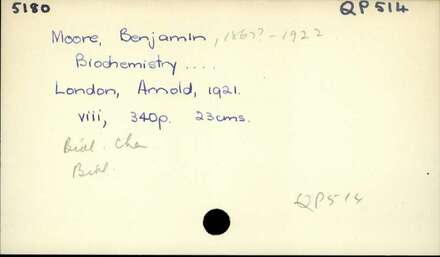 5180 QP 514
Moore, Benjamin, 1867?-1922
Biochemistry ....
London, Arnold, 1921.
viii, 340p. 23cms.
Biol. Che
Biol.
QP514